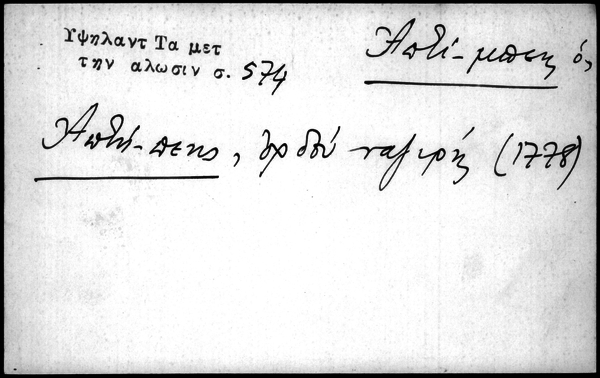 Υψηλαντ Τα μετ
την αλωσιν σ. 574
Ἀπτί-μπεης ὁ,
Ἀπτῆ-πεης, ὀρδοῦ ναζιρῆ (1778)